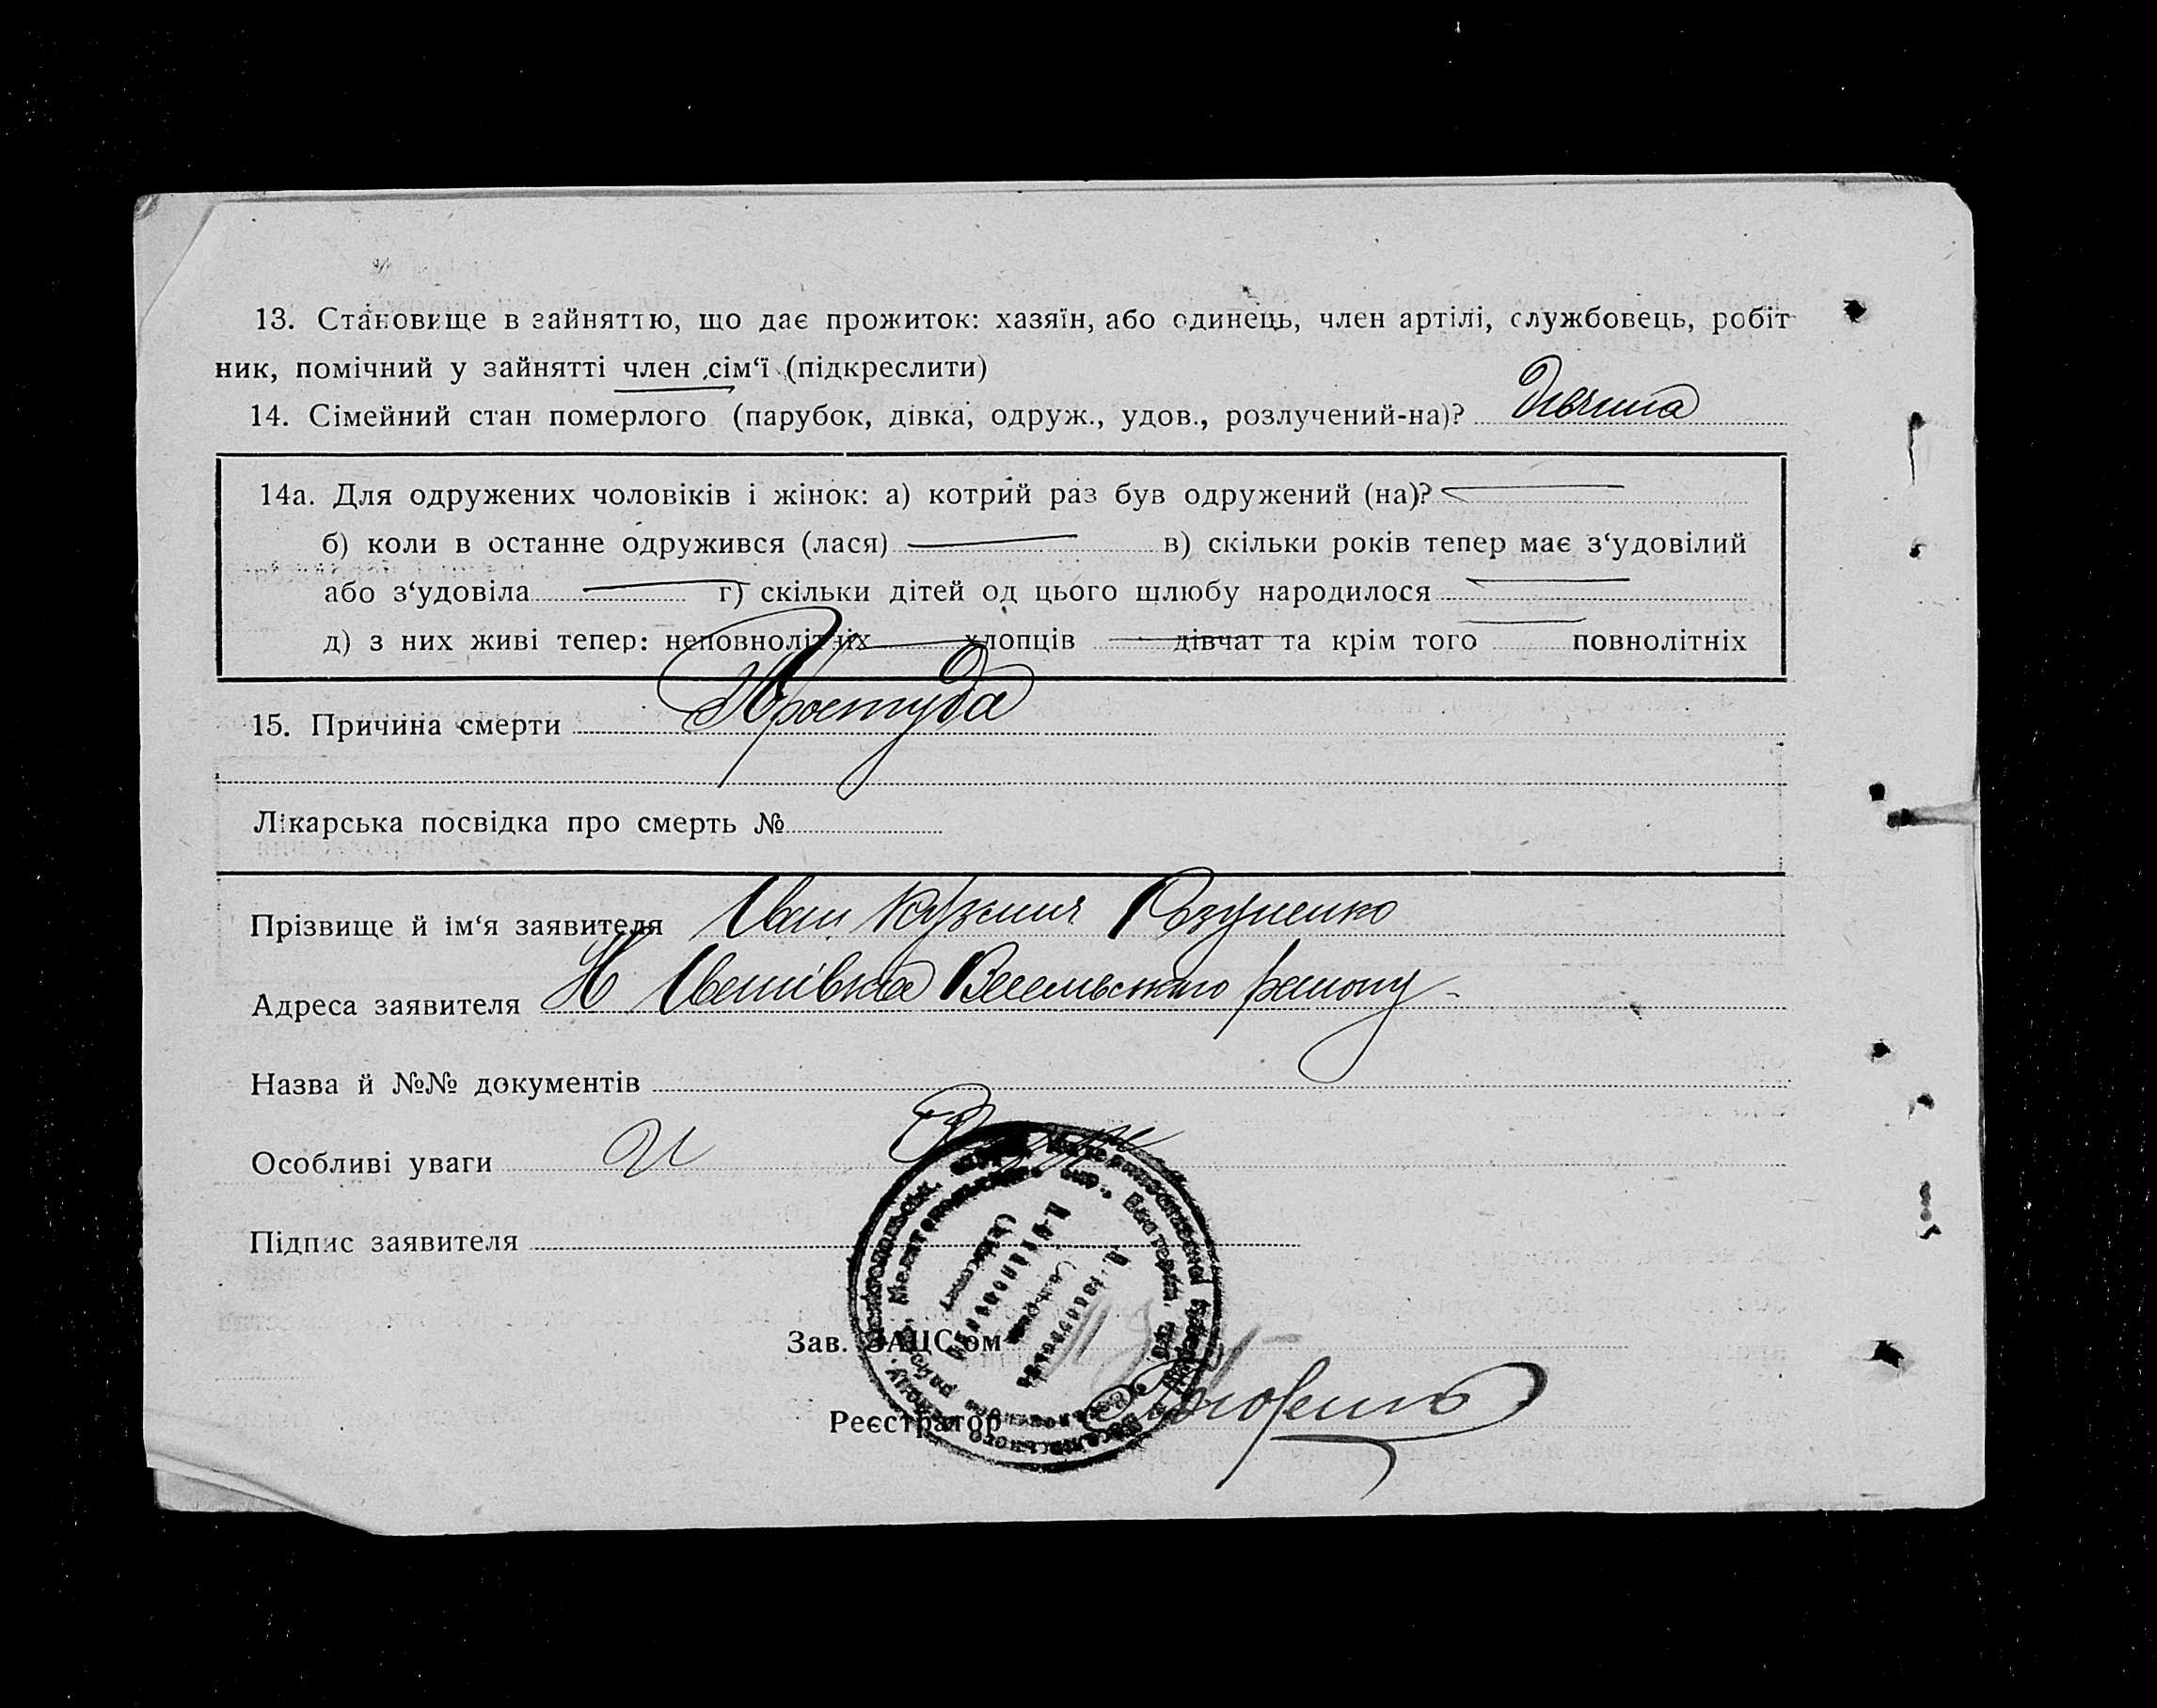 13. Становище в зайняттю, що дає прожиток: хазяїн, або одинець, член артілі, службовець, робіт
ник, помічний у зайнятті член сім‘ї (підкреслити)
14. Сімейний стан померлого (парубок, дівка, одруж., удов., розлучений-на)? Дівчина
14а. Для одружених чоловіків і жінок: а) котрий раз був одружений (на)?
б) коли в останне одружився (лася) в) скільки років тепер має з‘удовілий
або з‘удовіла г) скільки дітей од цього шлюбу народилося
д) з них живі тепер: неповнолітніх хлопців дівчат та крім того повнолітніх
15. Причина смерти Простуда
Лікарська посвідка про смерть №
Прізвище й ім‘я заявителя Іван Кузьмич
Адреса заявителя Н Іванівка Весельського району
Назва й №№ документів
Особливі уваги
Підпис заявителя
Зав. ЗАЦС‘ом
Реєстратор